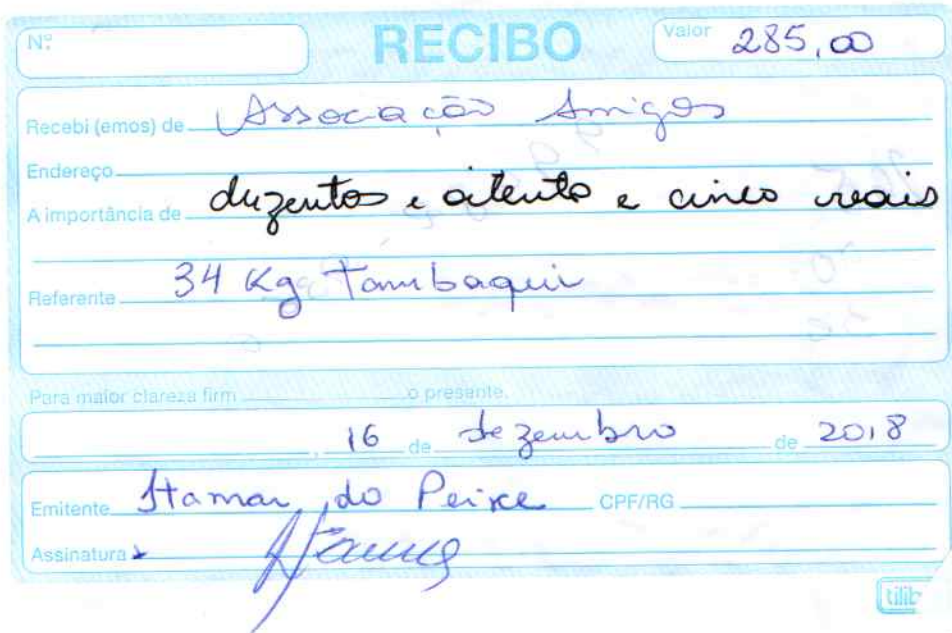 Nº RECIBO Valor 285,00
Recebi (emos) de Associação Amigos
Endereço
A importância de duzentos e oitenta e cinco reais
Referente 34 Kg Tambaqui
Para maior clareza firm o presente.
, 16 de dezembro de 2018
Emitente Itamar do Peixe CPF/RG
Assinatura